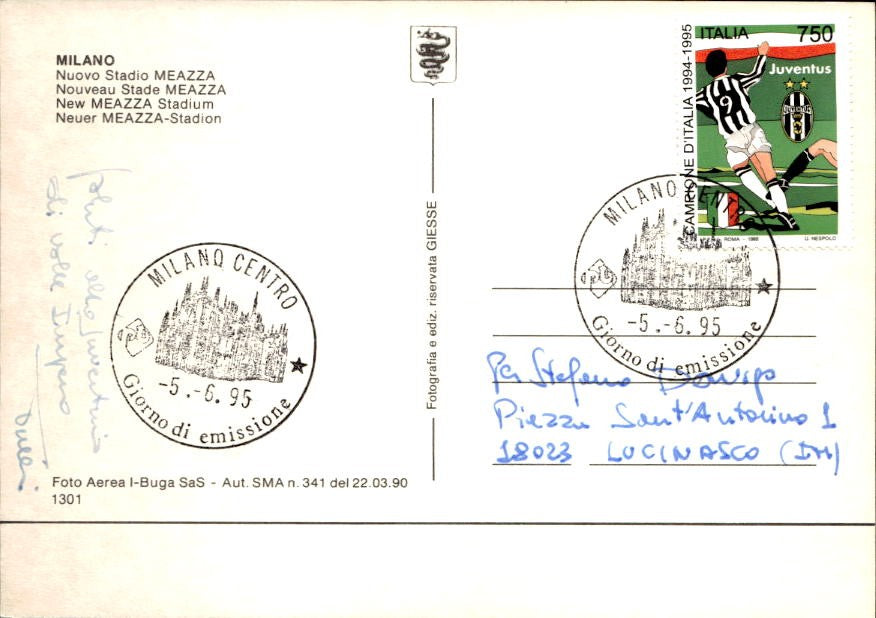 MILANO
Nuovo Stadio MEAZZA
Nouveau Stade MEAZZA
New MEAZZA Stadium
Neuer MEAZZA-Stadion
di valle Impero
MILANO CENTRO
-5.-6.95
Giorno di emissione
Foto Aerea I-Buga SaS - Aut. SMA n. 341 del 22.03.90
1301
Fotografia e ediz. riservata GIESSE
ITALIA 750
CAMPIONE D'ITALIA 1994-1995
Juventus
9
ROMA - 1995
U. NESPOLO
MILANO CENTRO
-5.-6.95
Giorno di emissione
Per Stefano
Piazza Sant'Antonino 1
18023 LUCINASCO (IM)